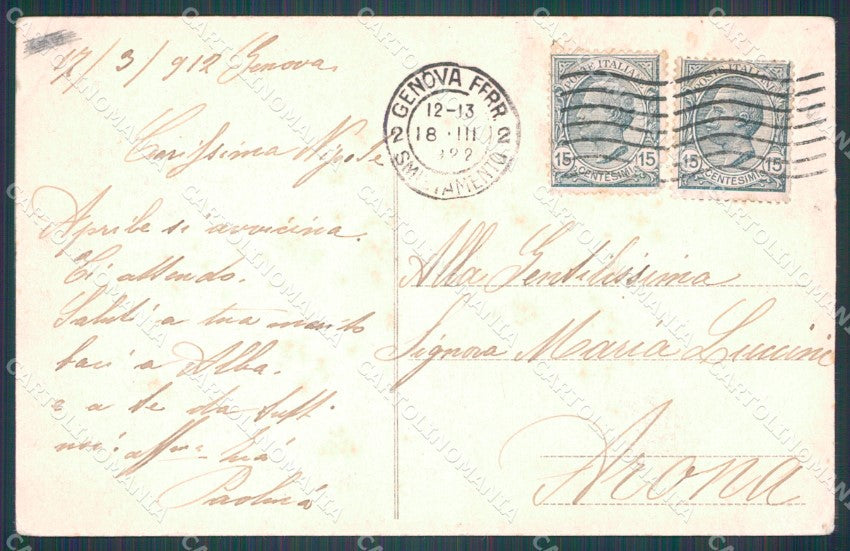 17/3/912 Genova
Carissima Nipote
Aprile si avvicina.
Ti attendo.
Saluti a tuo marito
baci a Alba.
e a te da tutti
noi: aff.ma zia
Paolina
GENOVA FERR.
12-13
18 · III
922
2 2
SMISTAMENTO
POSTE ITALIANE
15 15
CENTESIMI
POSTE ITALIANE
15 15
CENTESIMI
Alla Gentilissima
Signora Maria Luccini
Arona
CARTOLINOMANIA